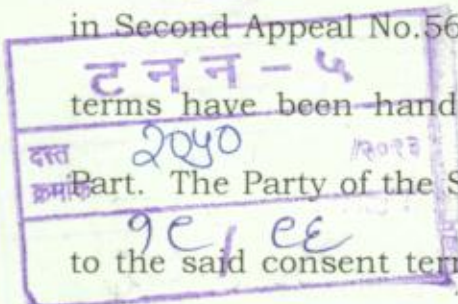 in Second Appeal No.56
ट न न - ५
terms have been hand
दस्त २०५० /२०२३
क्रमांक
Part. The Party of the S
१९/ ९६
to the said consent ter